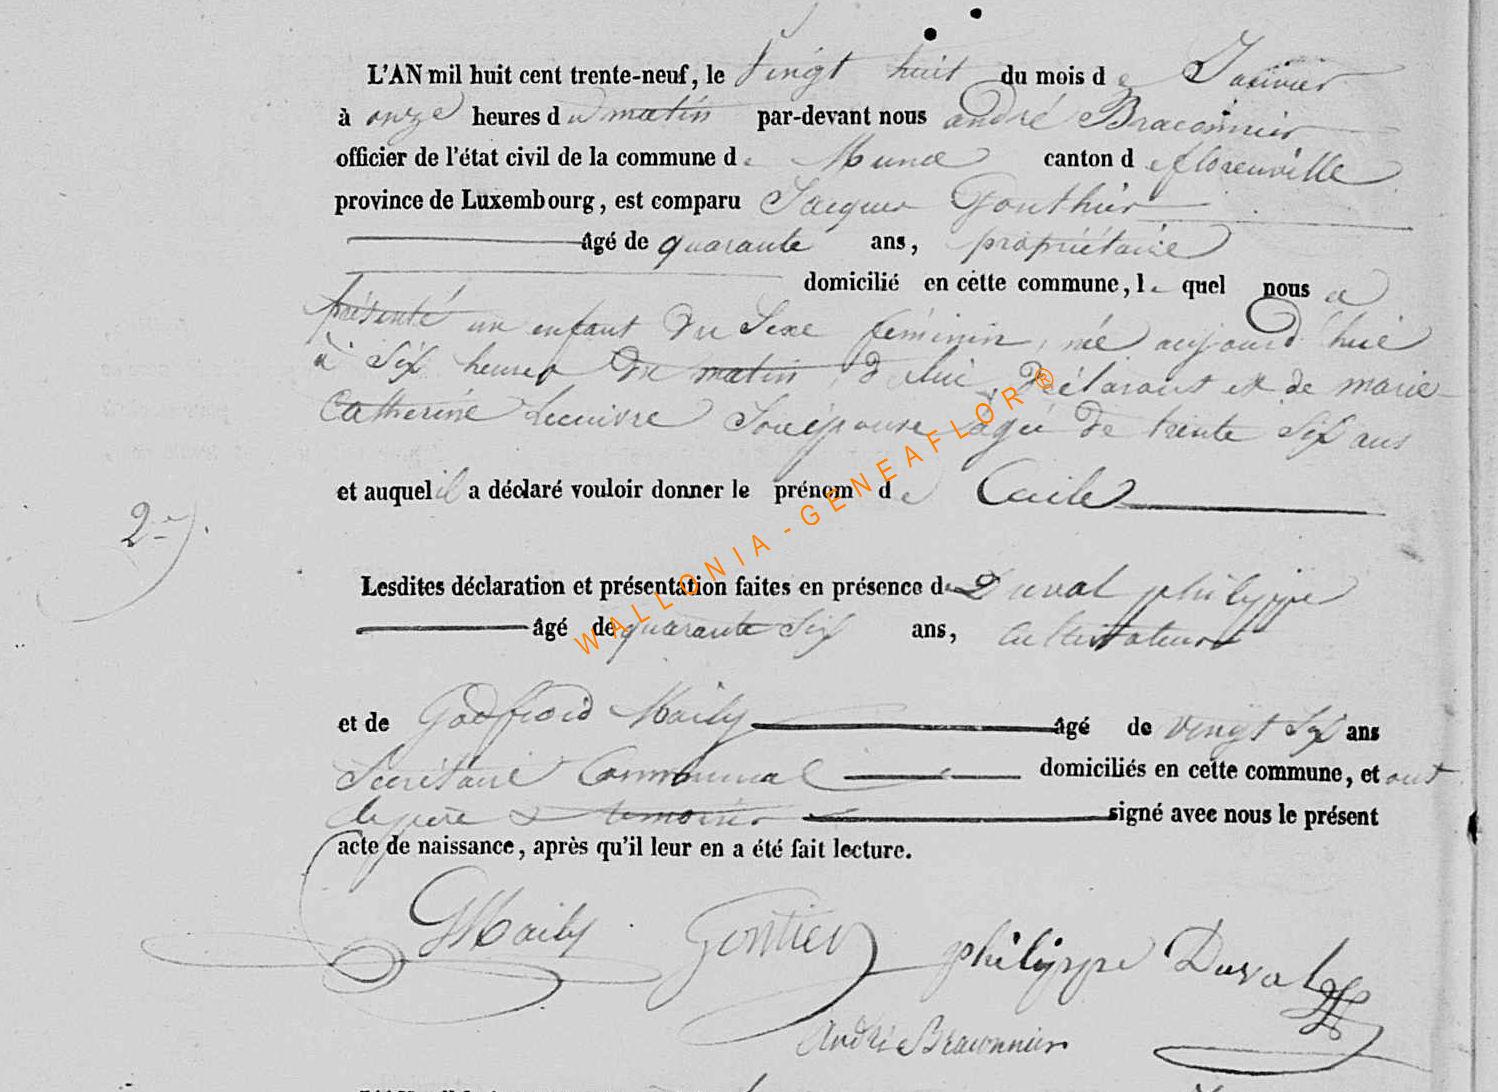 L'AN mil huit cent trente-neuf, le vingt huit du mois de Janvier
à onze heures du matin par-devant nous andré Braconnier
officier de l'état civil de la commune de Muno canton de florenville
province de Luxembourg, est comparu Jacques Gonthier
âgé de quarante ans, propriétaire
domicilié en cette commune, le quel nous a
présenté un enfant du Sexe féminin, née aujourd'hui
à Six heures du matin, de lui déclarant et de marie
Catherine Lecuivre Son épouse âgée de trente Six ans
et auquel il a déclaré vouloir donner le prénom de Cecile
2
Lesdites déclaration et présentation faites en présence de Duval philippe
âgé de quarante Six ans, cultivateur
et de Godfroid Maily âgé de vingt Six ans
Secrétaire Communal domiciliés en cette commune, et ont
le père & témoins signé avec nous le présent
acte de naissance, après qu'il leur en a été fait lecture.
GMaily Gontier philippe Duval
André Braconnier
WALLONIA - GENEAFLOR®